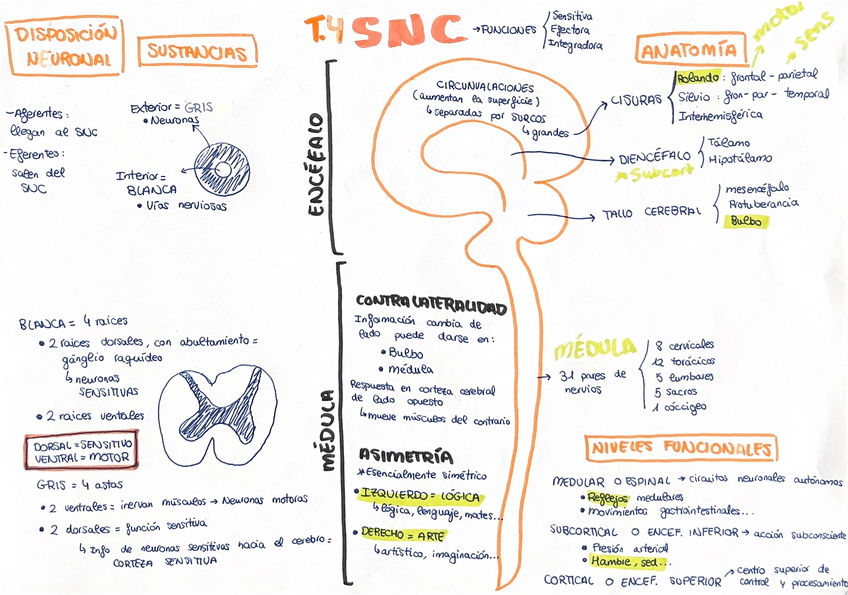 DISPOSICIÓN
NEURONAL
-Aferentes:
llegan al SNC
-Eferentes:
salen del
SNC
SUSTANCIAS
Exterior = GRIS
• Neuronas
Interior =
BLANCA
• Vías nerviosas
T.4 SNC
→FUNCIONES
Sensitiva
Efectora
Integradora
ENCÉFALO
CIRCUNVALACIONES
(aumentan la superficie)
↳ separadas por SURCOS
↳ grandes
ANATOMÍA
motor
sens
CISURAS
Rolando: frontal-parietal
Silvio: fron-par- temporal
Interhemisférica
DIENCÉFALO
* Subcort
Tálamo
Hipotálamo
TALLO CEREBRAL
mesencéfalo
Protuberancia
Bulbo
BLANCA = 4 raices
• 2 raices dorsales, con abultamiento =
gánglio raquídeo
↳ neuronas
SENSITIVAS
• 2 raices ventales
DORSAL=SENSITIVO
VENTRAL=MOTOR
GRIS = 4 astas
• 2 ventrales = inervan músculos → Neuronas motoras
• 2 dorsales = función sensitiva
↳ Info de neuronas sensitivas hacia el cerebro =
CORTEZA SENSITIVA
MÉDULA
CONTRALATERALIDAD
Información cambia de
lado puede darse en:
• Bulbo
• médula
Respuesta en corteza cerebral
de lado opuesto
↳ mueve músculos del contrario
ASIMETRÍA
*Esencialmente simétrico
• IZQUIERDO = LÓGICA
↳ lógica, lenguaje, mates...
• DERECHO = ARTE
↳ artístico, imaginación...
MÉDULA
31 pares de
nervios
8 cervicales
12 torácicos
5 lumbares
5 sacros
1 cóccigeo
NIVELES FUNCIONALES
MEDULAR O ESPINAL → circuitos neuronales autónomas
• Reflejos medulares
• movimientos gastrointestinales...
SUBCORTICAL O ENCEF. INFERIOR → acción subconsciente
• Presión arterial
• Hambre, sed...
CORTICAL O ENCEF. SUPERIOR → centro superior de
control y procesamiento